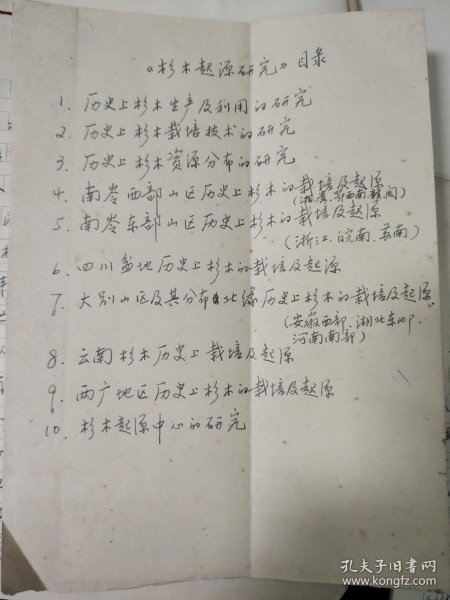 《杉木起源研究》目录
1、历史上杉木生产及利用的研究
2、历史上杉木栽培技术的研究
3、历史上杉木资源分布的研究
4、南岭西部山区历史上杉木的栽培及起源
5、南岭东部山区历史上杉木的栽培及起源
(浙江、皖南、苏南)
6、四川盆地历史上杉木的栽培及起源
7、大别山区及其分布北缘历史上杉木的栽培及起源
(安徽西部、湖北东北部、
河南南部)
8、云南杉木历史上栽培及起源
9、两广地区历史上杉木的栽培及起源
10、杉木起源中心的研究
孔夫子旧书网
www.kongfz.com